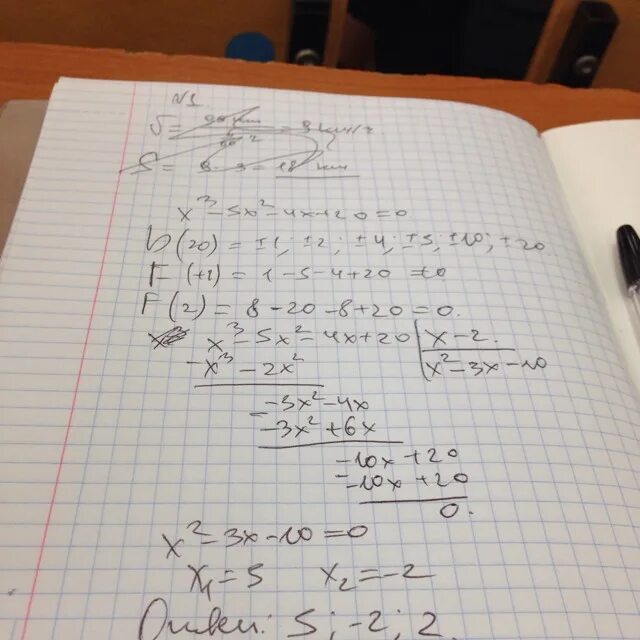 N1
x³-5x²-4x+20=0
D(20)=±1; ±2; ±4; ±5; ±10; ±20.
F(+1)=1-5-4+20≠0
F(2)=8-20-8+20=0.
x³-5x²-4x+20 | x-2.
-x³-2x² | x²-3x-10
-3x²-4x
-3x²+6x
-10x+20
-10x+20
0.
x²-3x-10=0
x₁=5 x₂=-2
Ответ: 5; -2; 2